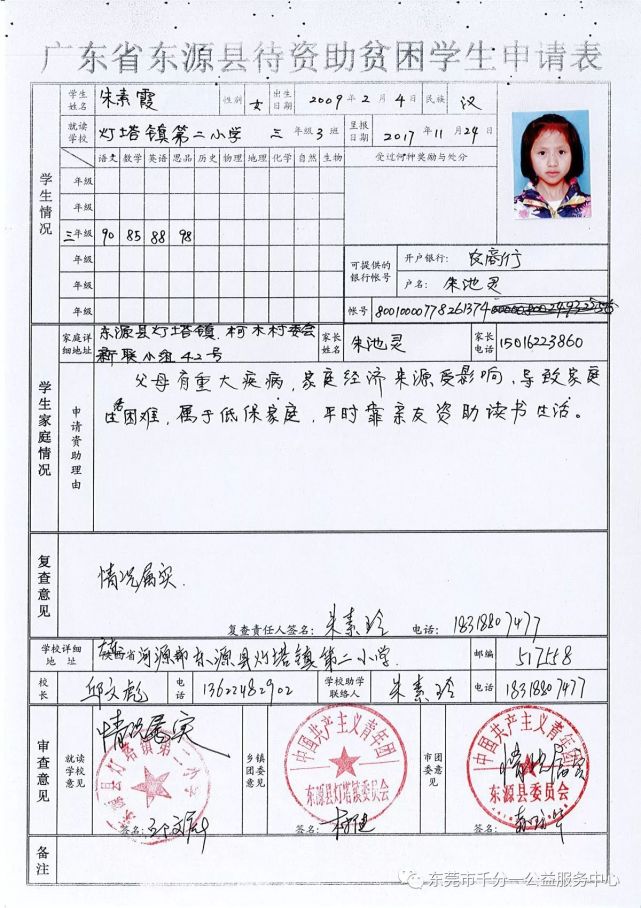 广东省东源县待资助贫困学生申请表
学生情况
学生姓名 朱素霞 性别 女 出生日期 2009年2月4日 民族 汉
就读学校 灯塔镇第二小学 三年级3班 呈报日期 2017年11月24日
语文 数学 英语 思品 历史 物理 地理 化学 自然 生物 受过何种奖励与处分
年级
年级
三年级 90 85 88 98
年级
年级
年级
可提供的银行帐号
开户银行: 农商行
户名: 朱池灵
帐号 80010000778261374
学生家庭情况
家庭详细地址 东源县灯塔镇柯木村委会新联小组42号 家长姓名 朱池灵 家长电话 15016223860
申请资助理由
父母有重大疾病,家庭经济来源受影响,导致家庭
生活困难,属于低保家庭,平时靠亲友资助读书生活。
复查意见
情况属实.
复查责任人签名: 朱素玲 电话: 18318807477
学校详细地址 省河源市东源县灯塔镇第二小学. 邮编 517558
校长 邱文彪 电话 13622482902 学校助学联络人 朱素玲 电话 18318807477
审查意见
就读学校意见 情况属实
东源县灯塔镇第二小学
签名:
乡镇团委意见
中国共产主义青年团
东源县灯塔镇委员会
签名:
市团委意见
中国共产主义青年团
情况属实
东源县委员会
签名:
备注
东莞市千分一公益服务中心